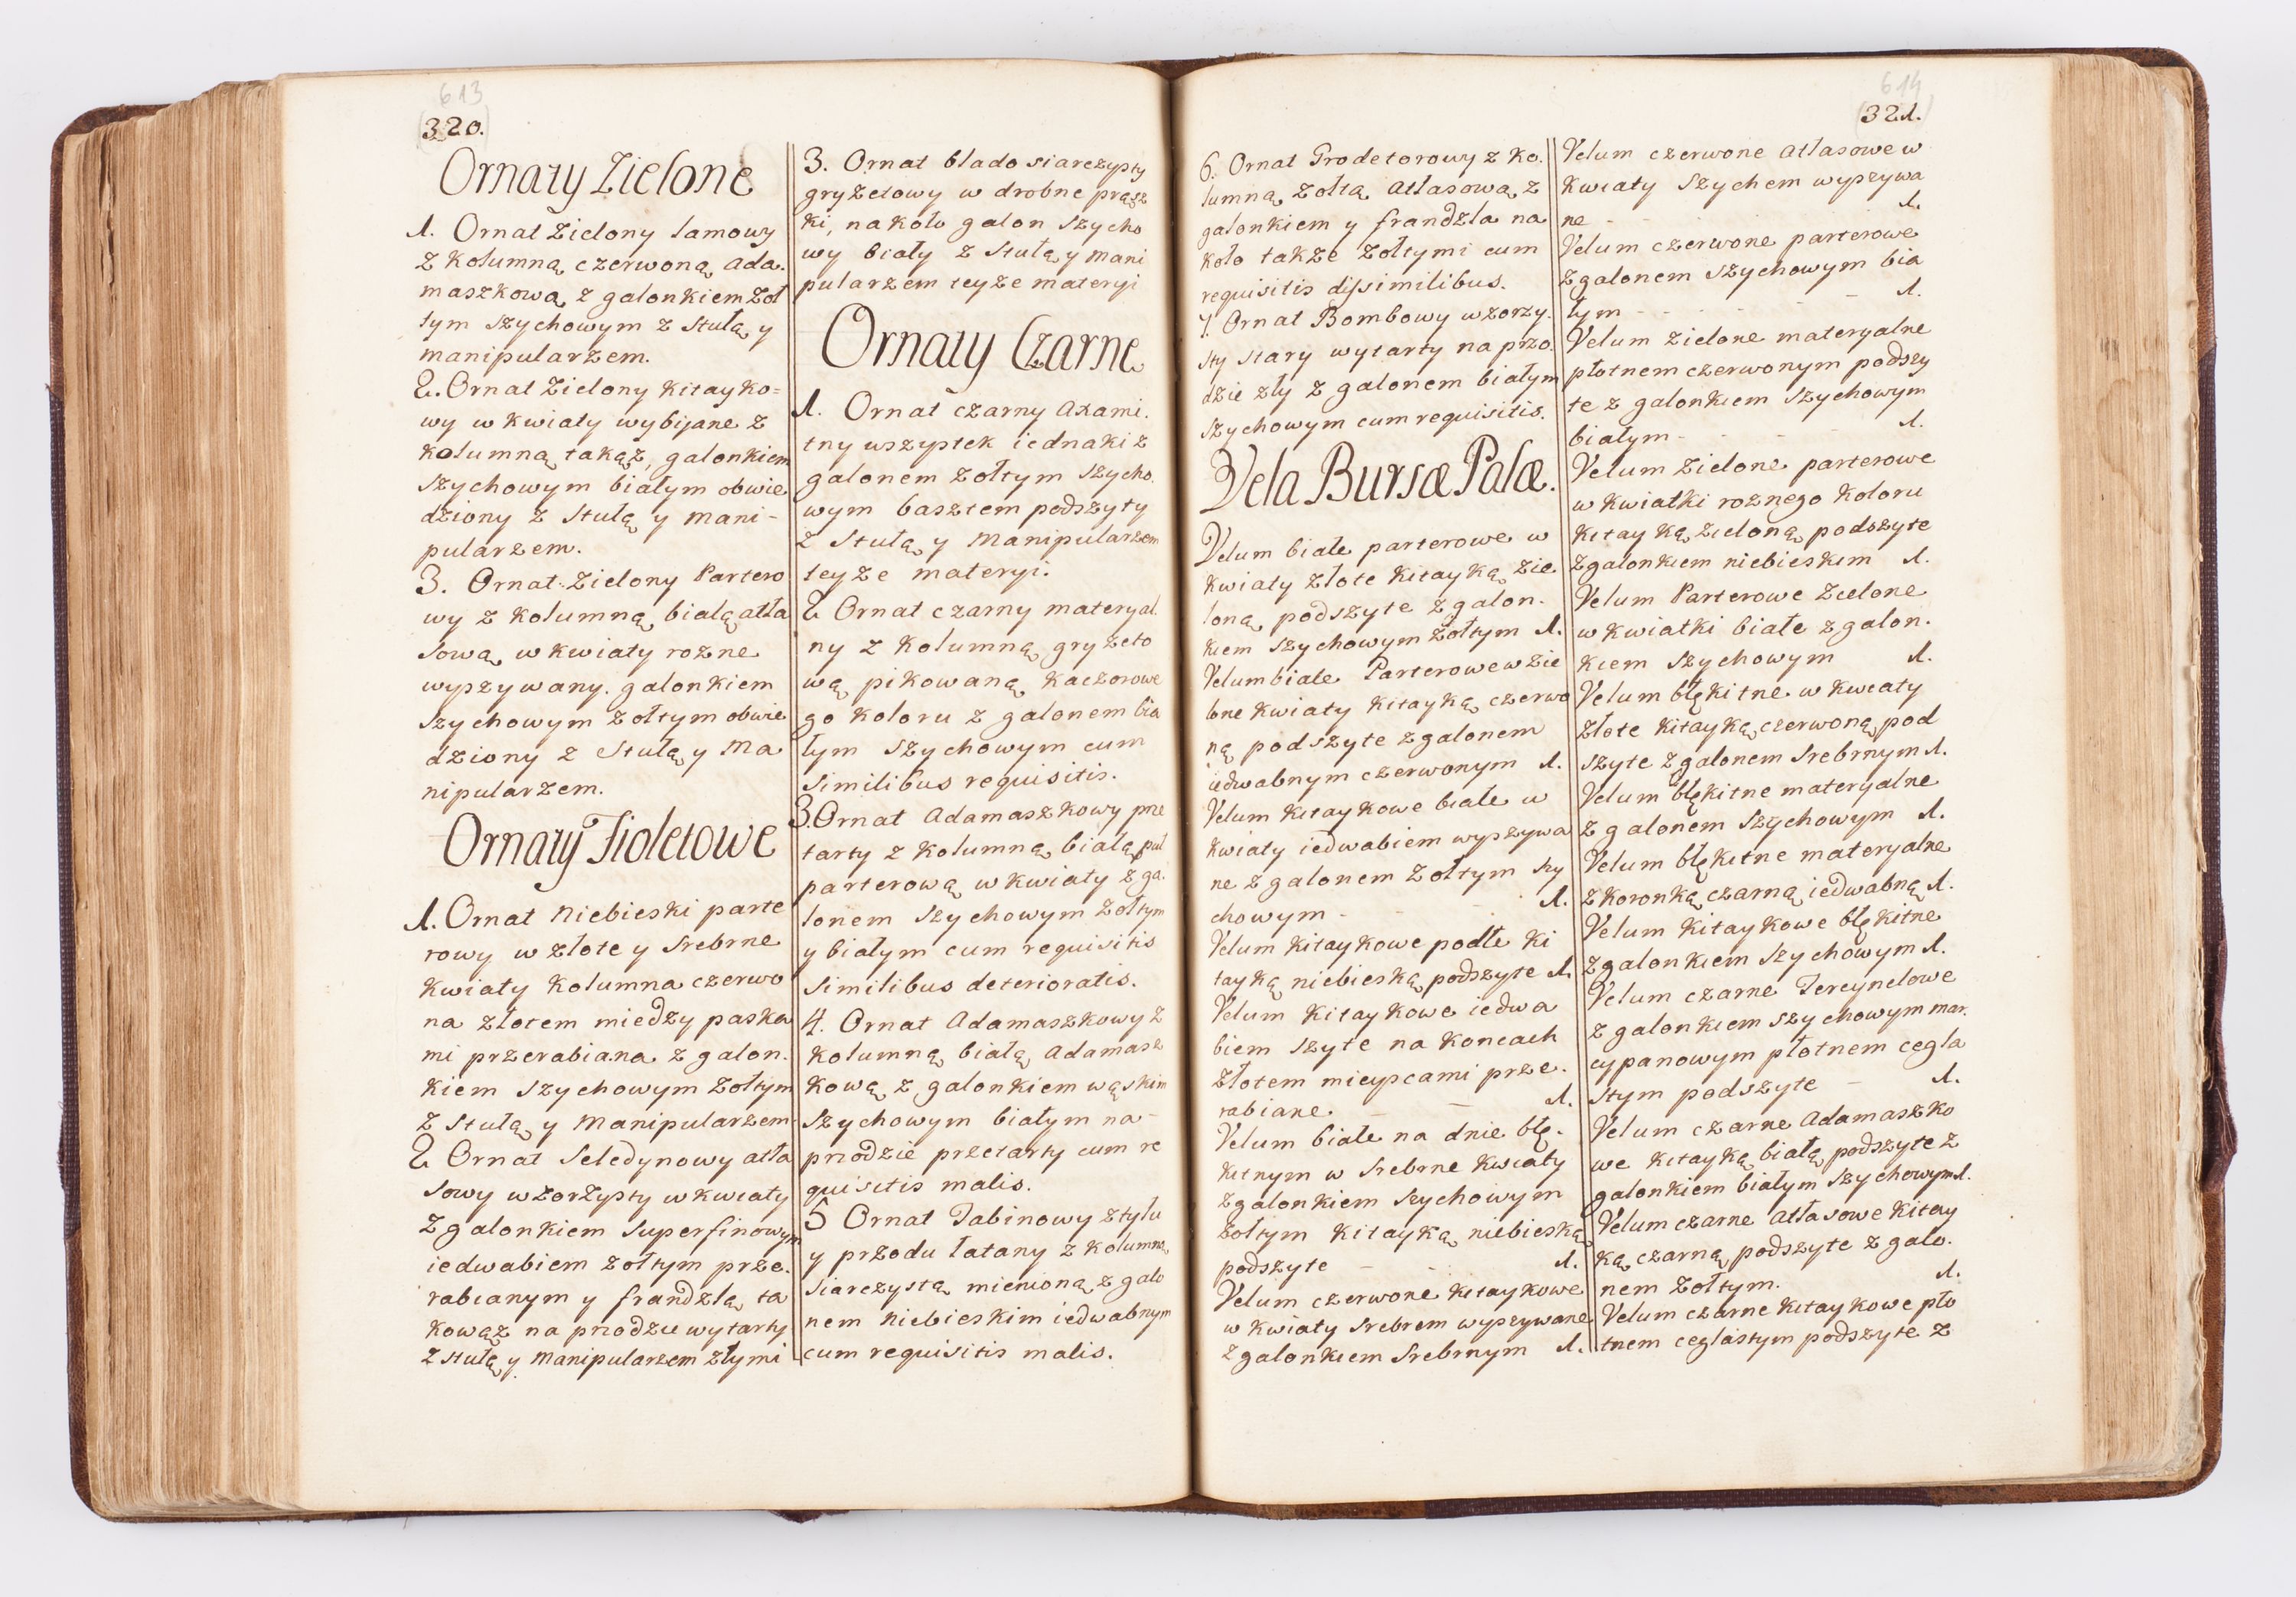 613
320.
Ornaty Zielone
1. Ornat Zielony lamowy
z Kolumną czerwoną Ada-
maszkową z galonkiem żoł
tym szychowym z Stułą y
manipularzem.
2. Ornat Zielony Kitayko=
wy w Kwiaty wybijane z
Kolumną takąż, galonkiem
szychowym białym obwie
dziony z Stułą y Mani-
pularzem.
3. Ornat Zielony Partero
wy z Kolumną białą atła
sową w kwiaty rozne
wyszywany. galonkiem
szychowym żołtym obwie
dziony z Stułą y Ma
nipularzem.
Ornaty Fioletowe
1. Ornat Niebieski parte
rowy w złote y Srebrne
Kwiaty Kolumna czerwo
na złotem miedzy paska
mi przerabiana z galon.
kiem szychowym żołtym
z Stułą y Manipularzem
2 Ornat Seledynowy atła
sowy wzorzysty w kwiaty
z galonkiem superfinowym
iedwabiem żołtym prze.
rabianym y frandzlą ta
kowąż na przodzie wytarty
z stułą y Manipularzem złymi
3. Ornat blado siarczysty
gryzetowy w drobne prąsz
ki, na koło galon szycho
wy biały z Stułą y mani
pularzem teyże materyi
Ornaty Czarne
1. Ornat czarny Axami.
tny wszystek iednaki z
galonem żołtym szycho.
wym basztem podszyty
z Stułą y Manipularzem
teyże materyi.
2 Ornat czarny materyal.
ny z Kolumną gryzeto
wą pikowaną Kaczorowe
go koloru z galonem bia
łym szychowym cum
similibus requisitis.
3. Ornat Adamaszkowy prze
tarty z Kolumną białą puł
parterową w kwiaty z ga.
lonem szychowym żołtym
y białym cum requisitis
similibus deterioratis.
4. Ornat Adamaszkowy z
Kolumną białą Adamasz
kową z galonkiem wąskim
szychowym białym na-
przodzie przetarty cum re
quisitis malis.
5 Ornat Tabinowy z tyłu
y przodu łatany z kolumną
siarczystą mienioną z galo
nem niebieskim iedwabnym
cum requisitis malis.
614
321.
6. Ornat Grodetorowy z Ko.
lumną żołtą Atłasową z
galonkiem y frandzla na
koło także żołtymi cum
requisitis dissimilibus.
7. Ornat Bombowy wzorzy.
sty stary wytarty na przo.
dzie zły z galonem białym
szychowym cum requisitis.
Vela Bursæ Palæ.
Velum białe parterowe w
Kwiaty złote Kitayką zie
loną podszyte z galon.
kiem szychowym żołtym 1.
Velum białe Parterowe w zie
lone Kwiaty Kitayką czerwo
ną podszyte z galonem
iedwabnym czerwonym 1.
Velum Kitaykowe białe w
Kwiaty iedwabiem wyszywa
ne z galonem żołtym szy
chowym - - - 1.
Velum Kitaykowe podłe Ki
tayką niebieską podszyte 1.
Velum Kitaykowe iedwa
biem szyte na Koncach
złotem mieyscami prze.
rabiane. - - 1.
Velum białe na dnie błę.
kitnym w Srebrne Kwiaty
z galonkiem szychowym
żołtym Kitayką niebieską
podszyte - - 1.
Velum czerwone Kitaykowe
w Kwiaty srebrem wyszywane
z galonkiem Srebrnym 1.
Velum czerwone Atłasowe w
Kwiaty Szychem wyszywa
ne - - 1.
Velum czerwone parterowe
z galonem szychowym bia
łym - - - 1.
Velum Zielone materyalne
płotnem czerwonym podszy
te z galonkiem szychowym
białym - - - 1.
Velum Zielone parterowe
w Kwiatki roznego Koloru
Kitayką zieloną podszyte
z galonkiem niebieskim 1.
Velum Parterowe Zielone
w Kwiatki białe z galon.
kiem szychowym 1.
Velum błękitne w Kwiaty
złote Kitayką czerwoną pod
szyte z galonem Srebrnym 1.
Velum błękitne materyalne
z galonem szychowym 1.
Velum błękitne materyalne
z Koronką czarną iedwabną 1.
Velum Kitaykowe błękitne
z galonkiem szychowym 1.
Velum czarne Tercynelowe
z galonkiem szychowym mar.
cypanowym płotnem cegla
stym podszyte - 1.
Velum czarne Adamaszko
we Kitayką białą podszyte z
galonkiem białym szychowym 1.
Velum czarne Atłasowe Kitay
ką czarną podszyte z galo.
nem żołtym. 1.
Velum czarne Kitaykowe pło
tnem ceglastym podszyte z